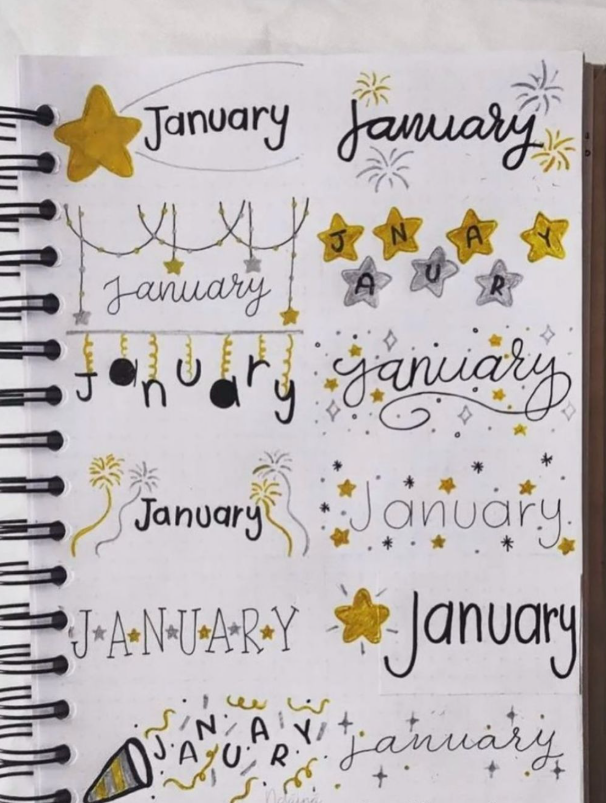 January
January
January
JANUARY
January
January
January
January
J·A·N·U·A·R·Y
January
JANUARY
January